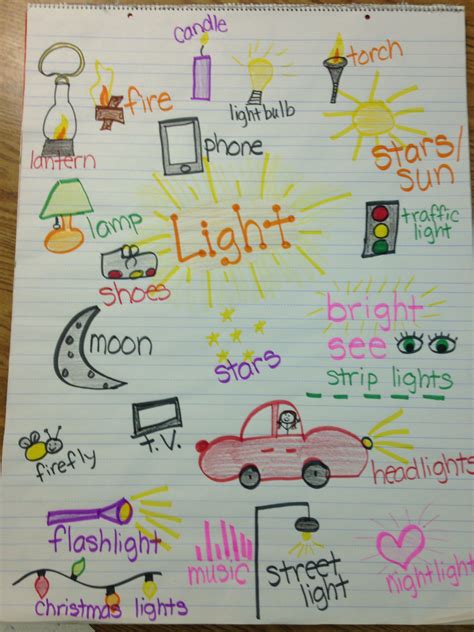 candle
torch
fire
lightbulb
lantern
phone
stars/
sun
lamp
Light
traffic
light
shoes
bright
moon
see
stars
strip lights
t.v.
firefly
headlights
flashlight
music
street
light
nightlight
christmas lights